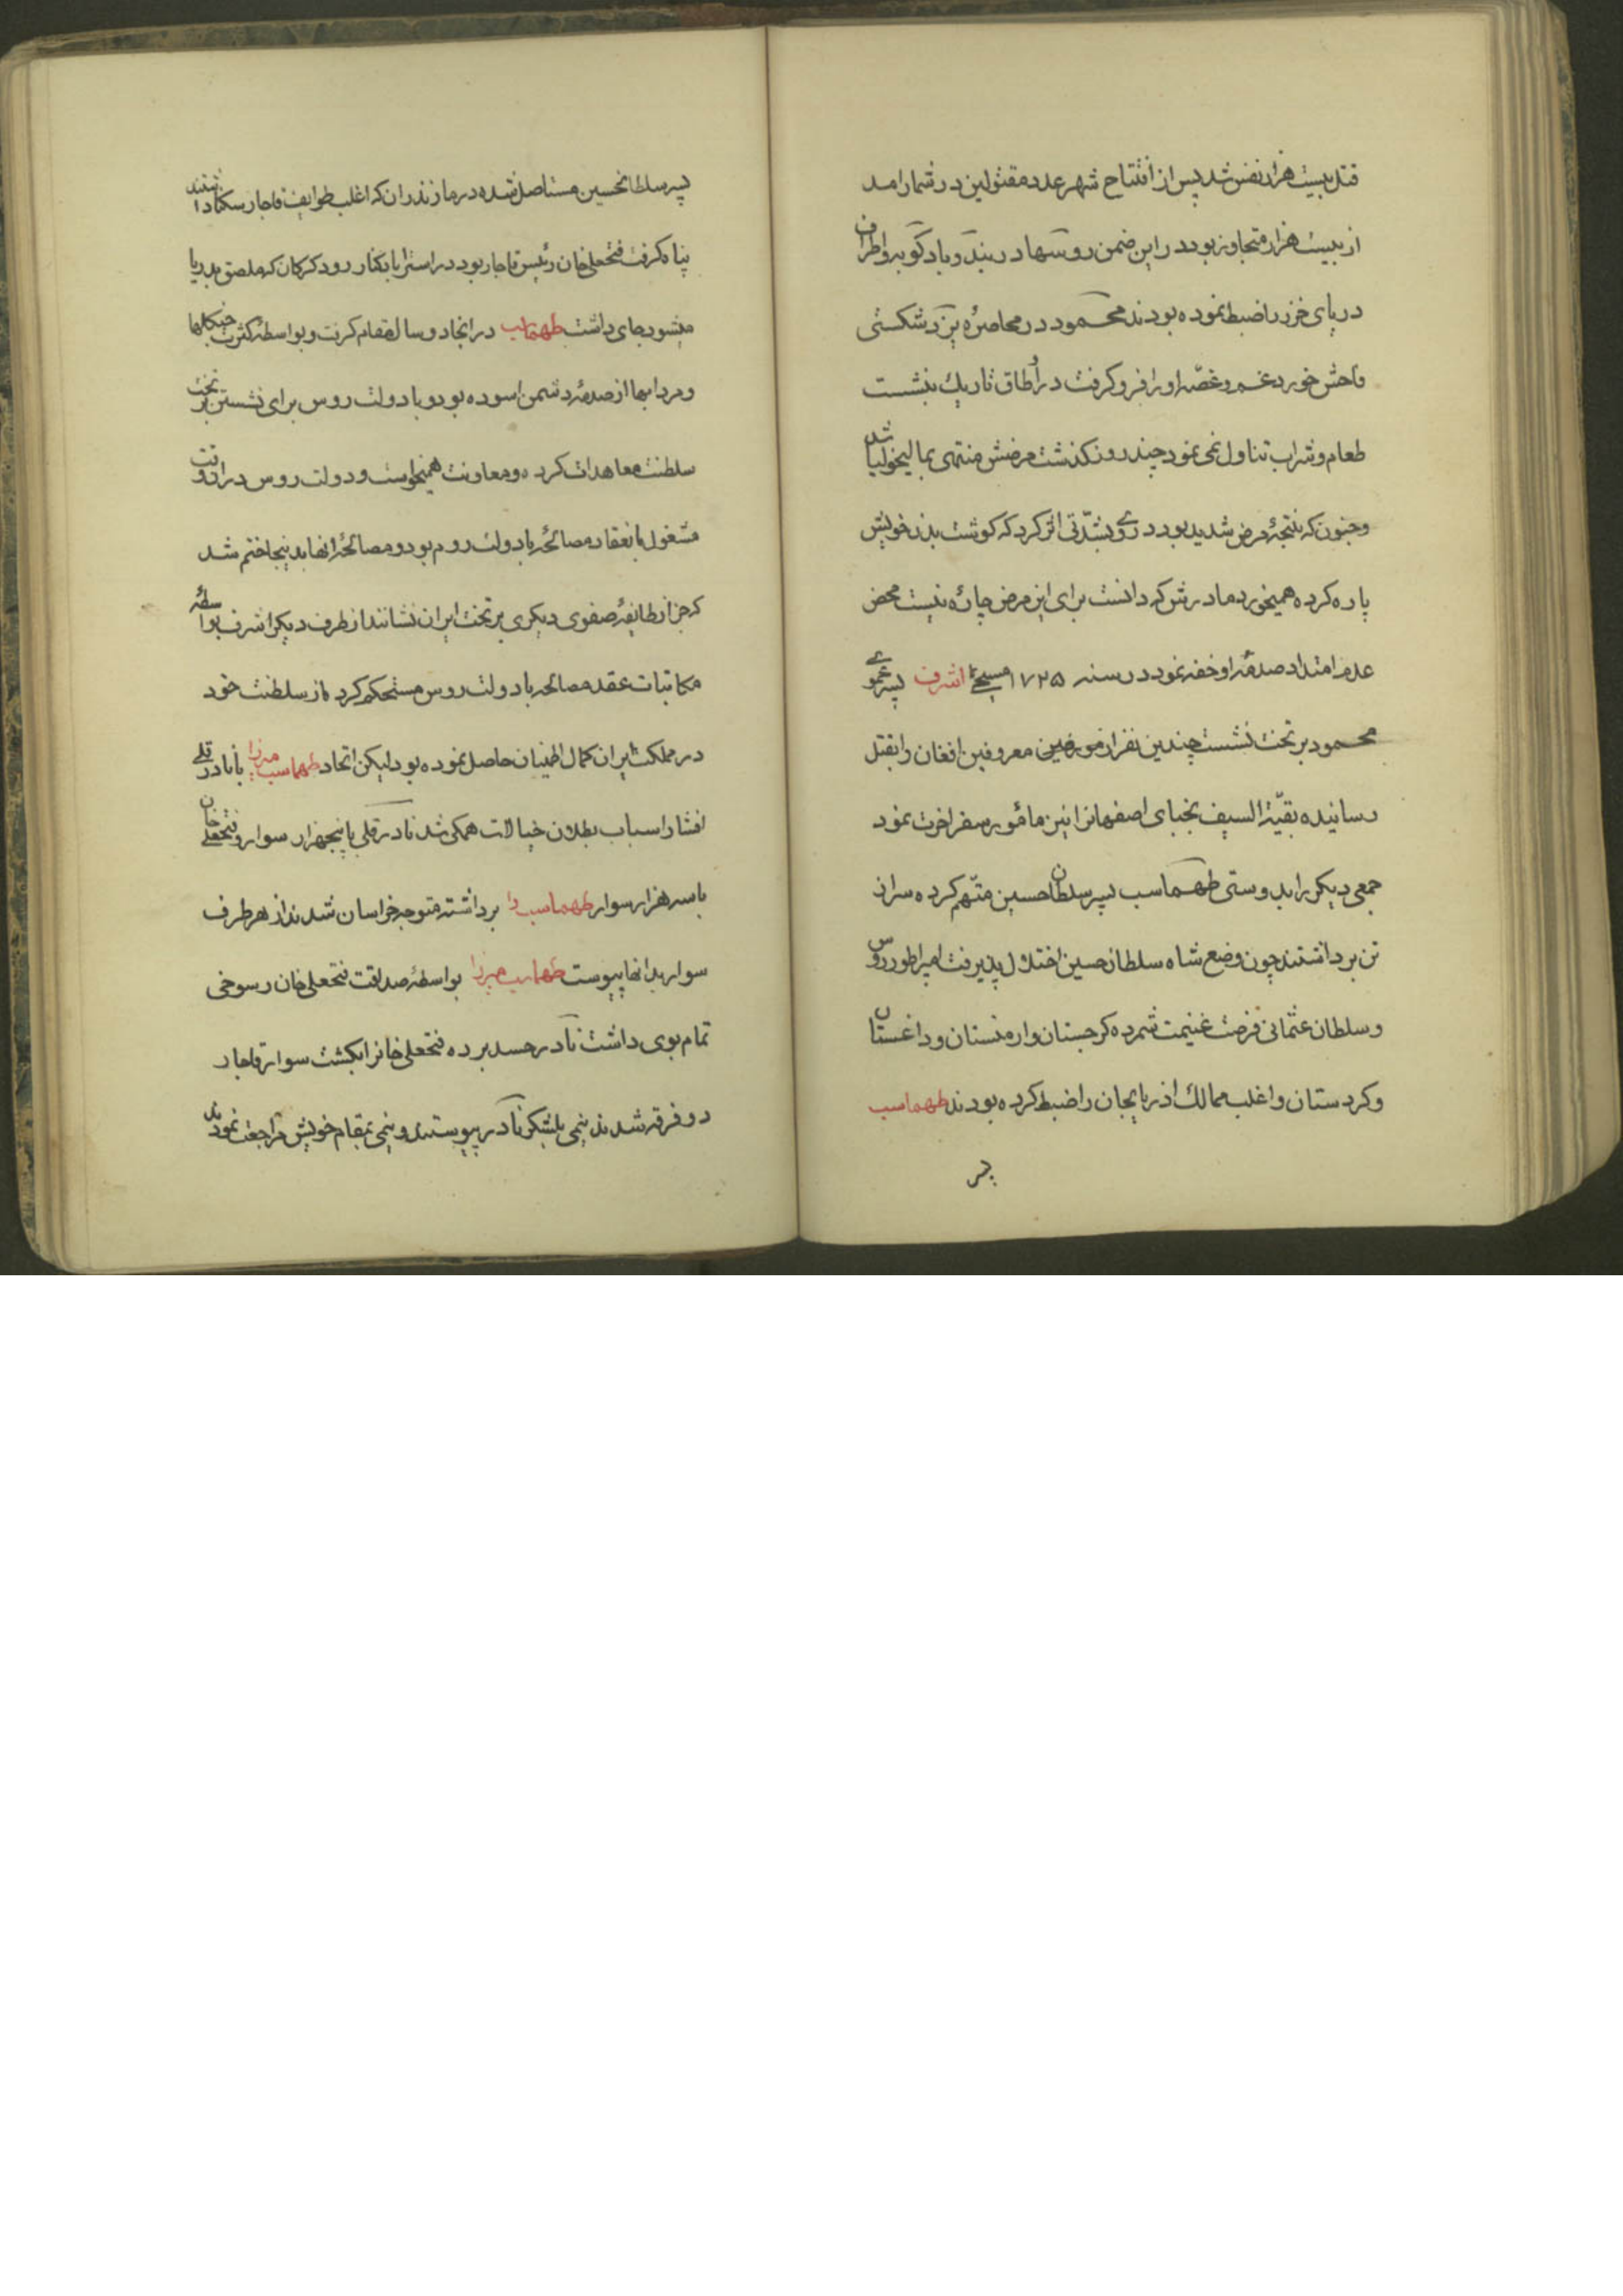 قتل بیست هزار نفس شد پس از افتتاح شهر عدد مقتولین در شمار امد
از بیست هزار متجاوز بود در این ضمن روسها دربند و بادکوبه و اطراف
دریای خزر را ضبط نموده بودند محمود در محاصرهٔ یزد شکستی
فاحش خورد غم و غصّه او را فرو کرفت در اُطاق تاریك بنشست
طعام و شراب تناول نمی نمود چند روز نکذشت مرضش منتهی بمالیخولیا شد
و جنون که نتیجهٔ مرض شدید بود در وی بشدّتی اثر کرد که کوشت بدن خویش
پاره کرده همیخورد مادرش کرد دانست برای این مرض چاره نیست محض
عدم امتداد صدمهٔ او خفه نمود در سنه ۱۷۲۵ مسیحی اشرف پسر عموی
محمود بر تخت نشست چندین نفر از مورخین معروفین افغان را بقتل
رسانیده بقیّة السیف نجبای اصفهانرا نیز مامور سفر اخرت نمود
جمعی دیکر را بدوستی طهماسب پسر سلطان حسین متّهم کرده سر از
تن برداشتند چون وضع شاه سلطان حسین اختلال پذیرفت امپراطور روس
و سلطان عثمانی فرصت غنیمت شمرده کرجستان و ارمنستان و داغستان
و کردستان و اغلب ممالك اذربایجان را ضبط کرده بودند طهماسب
پسر
پسر سلطانحسین مستاصل شده در مازندران که اغلب طوایف قاجار سکنا داشتند
پناه کرفت فتحعلی خان رئیس قاجار بود در استراباد کنار رود کرکان که ملصق بدریا
میشود جای داشت طهماسب در انجا دو سال مقام کرفت و بواسطهٔ کثرت جنکلها
و مردابها از صدمهٔ دشمن اسوده بود و با دولت روس برای نشستن بر تخت
سلطنت معاهدات کرده و معاونت همیخواست و دولت روس در ان وقت
مشغول بانعقاد مصالحه با دولت روم بود و مصالحهٔ انها بدینجا ختم شد
که جز از طایفهٔ صفوی دیکری بر تخت ایران نشانند از طرف دیکر اشرف بواسطهٔ
مکاتبات عقد مصالحه با دولت روس مستحکم کرد از سلطنت خود
در مملکت ایران کمال اطمینان حاصل نموده بود لیکن اتحاد طهماسب میرزا با نادر قلی
افشار اسباب بطلان خیالات همکی شد نادر قلی با پنجهزار سوار و فتحعلی خان
با سه هزار سوار طهماسب را برداشته متوجه خراسان شدند از هر طرف
سوار بدانها پیوست طهماسب میرزا بواسطهٔ صداقت فتحعلی خان رسوخی
تمام بوی داشت نادر حسد برده فتحعلی خانرا بکشت سوار قاجار
دو فرقه شدند نیمی بلشکر نادر پیوستند و نیمی بمقام خویش مراجعت نمودند